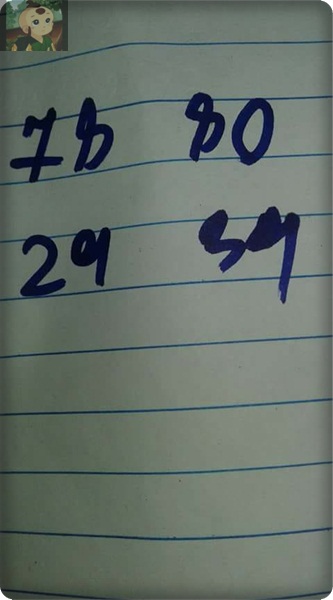 78 80
29 59